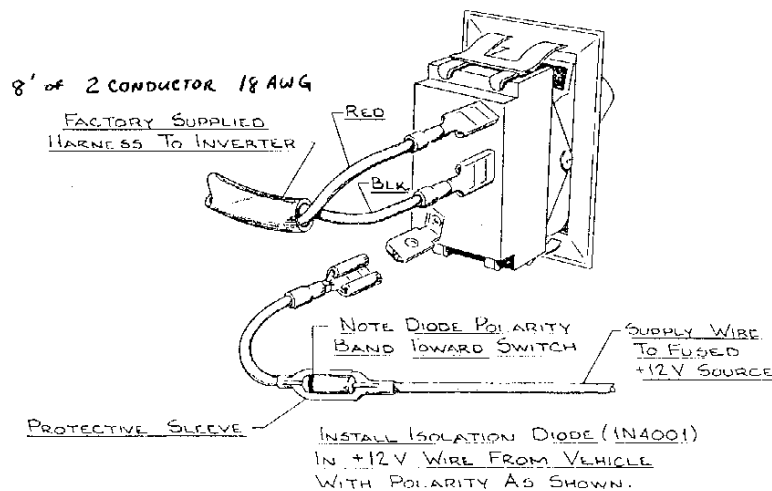 8' of 2 CONDUCTOR 18 AWG
FACTORY SUPPLIED
HARNESS TO INVERTER
RED
BLK
NOTE DIODE POLARITY
BAND TOWARD SWITCH
SUPPLY WIRE
TO FUSED
+12V SOURCE
PROTECTIVE SLEEVE
INSTALL ISOLATION DIODE (1N4001)
IN +12V WIRE FROM VEHICLE
WITH POLARITY AS SHOWN.